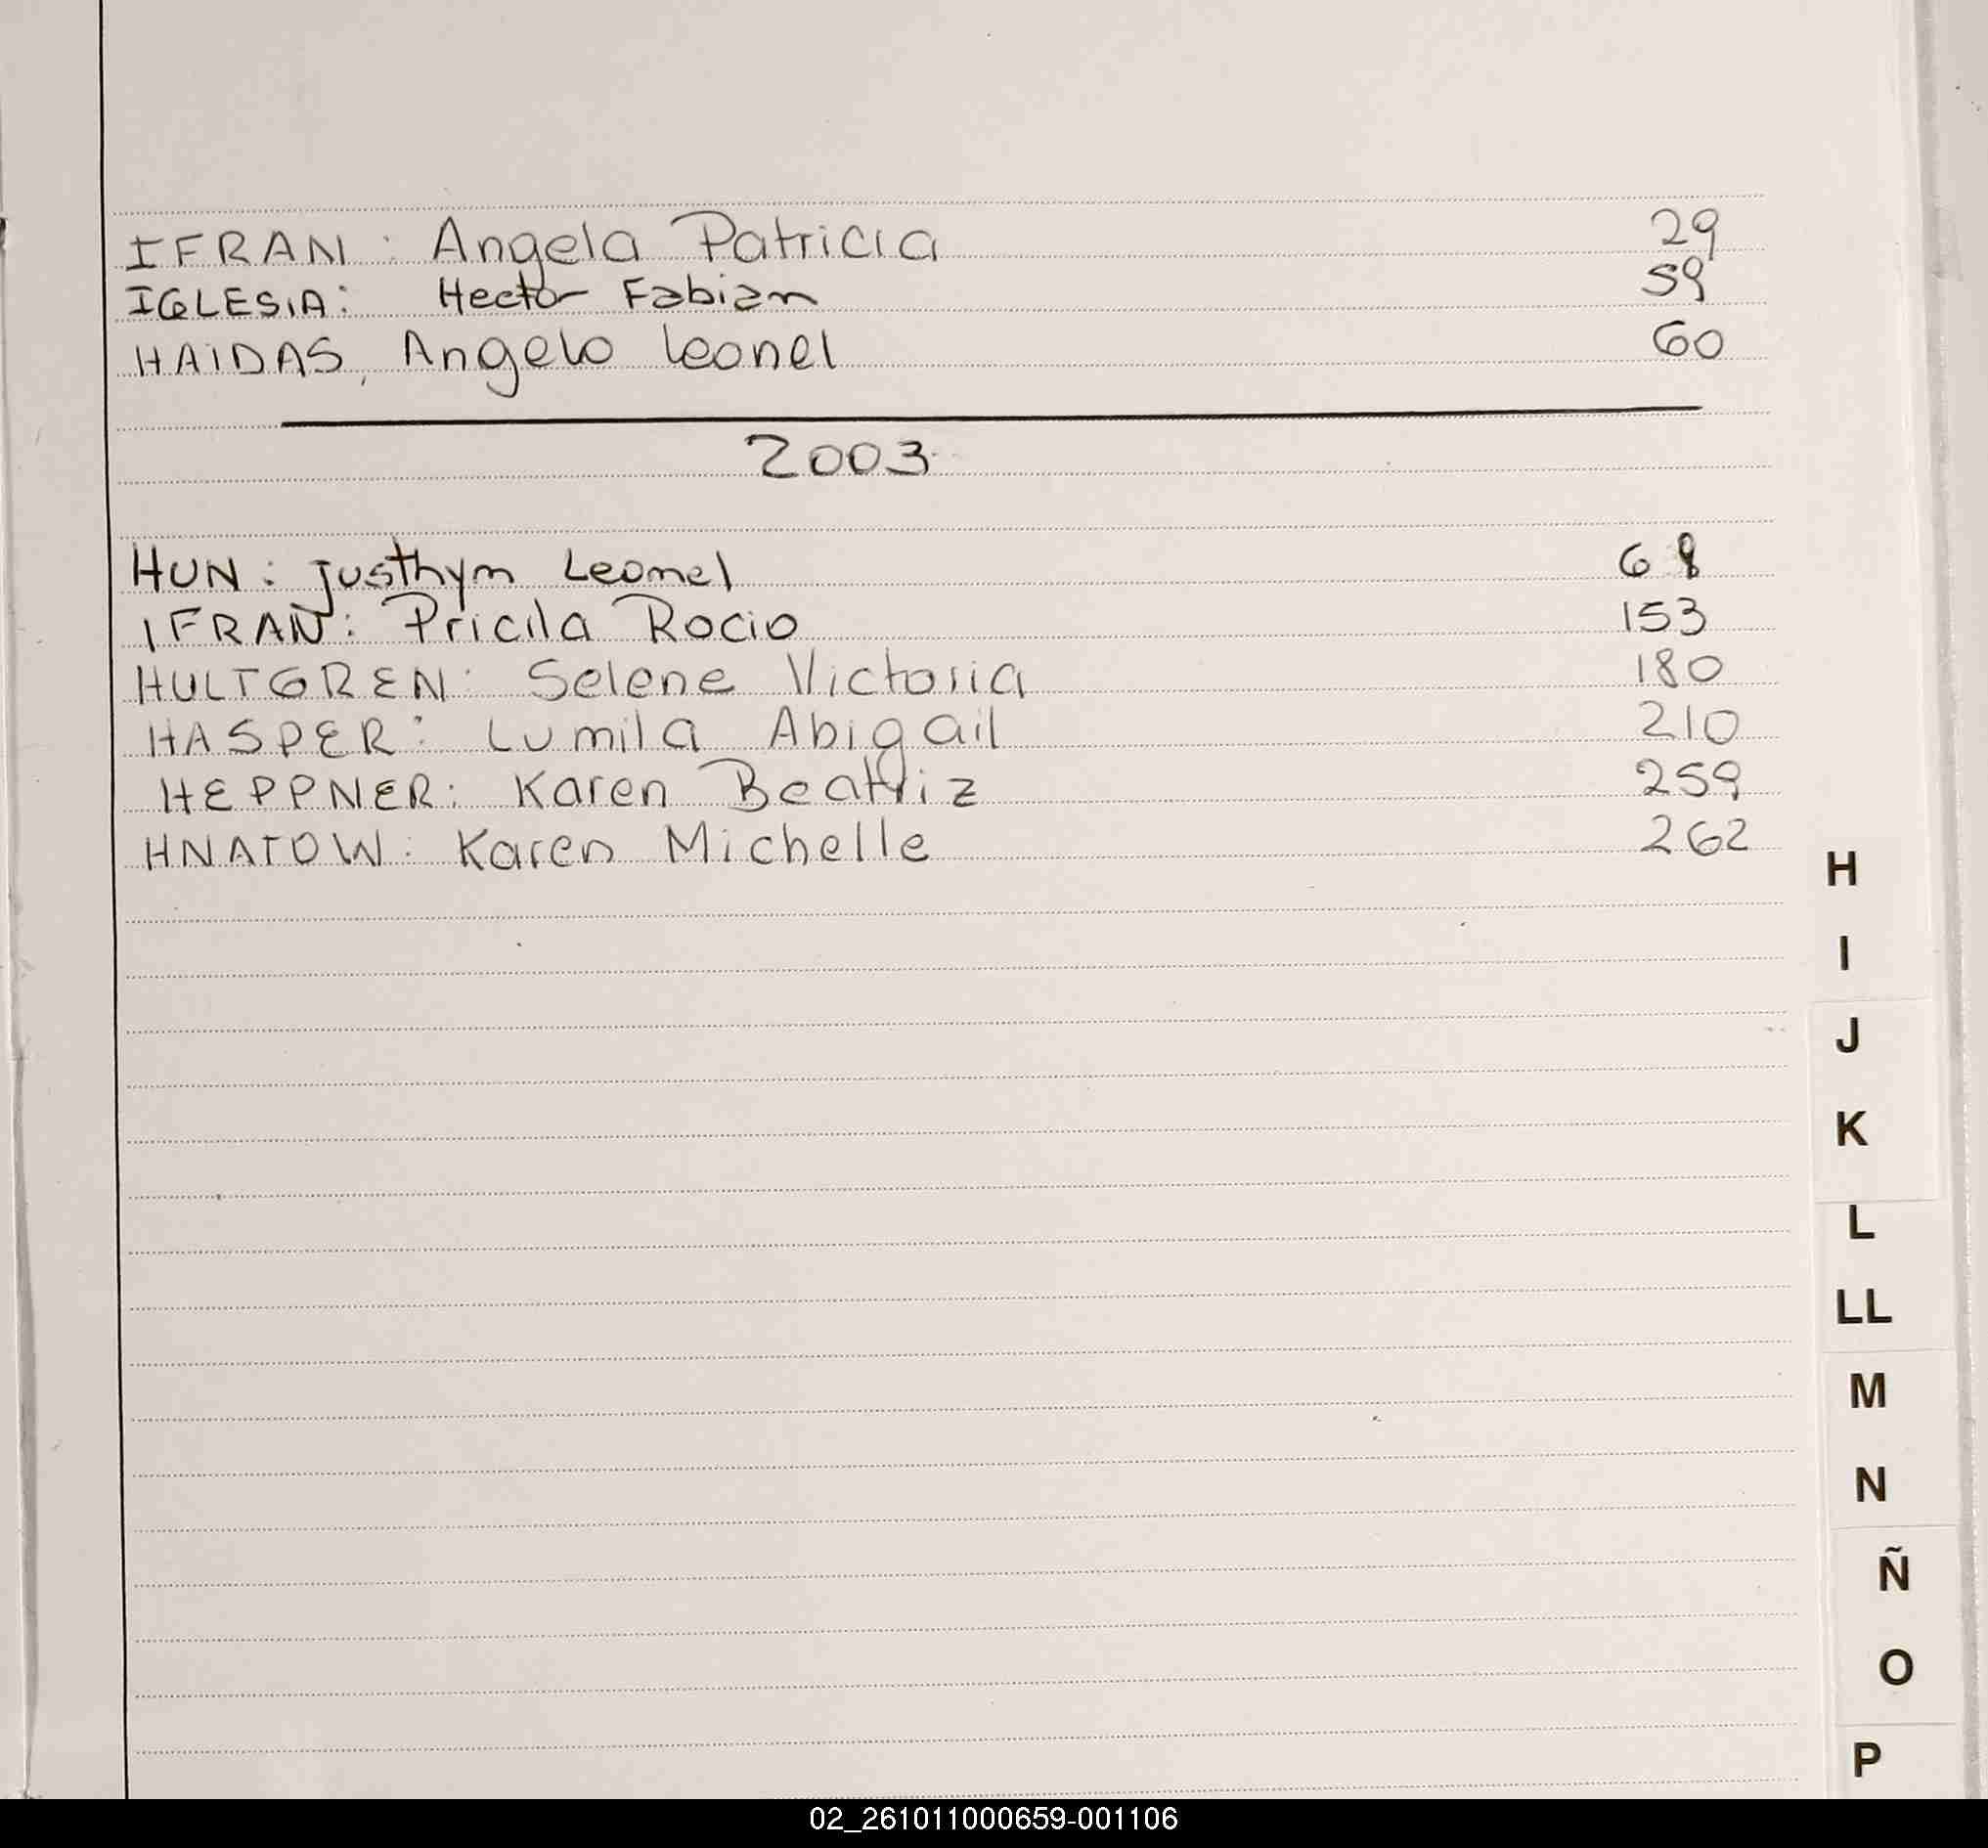 IFRAN: Angela Patricia 29
IGLESIA: Hector Fabian 59
HAIDAS, Angelo Leonel 60
2003
HUN: Justhym Leonel 68
IFRAN: Pricila Rocio 153
HULTGREN: Selene Victoria 180
HASPER: Lumila Abigail 210
HEPPNER: Karen Beatriz 259
HNATOW: Karen Michelle 262
H
I
J
K
L
LL
M
N
Ñ
O
P
02_261011000659-001106